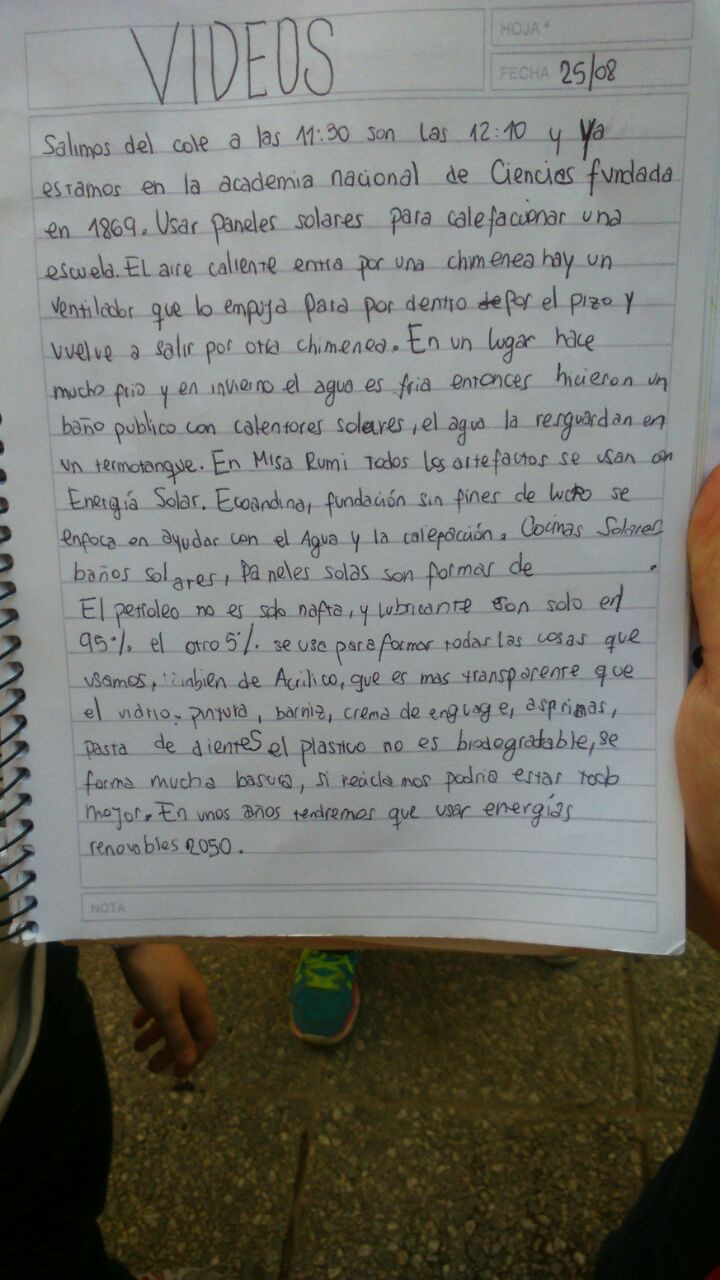 VIDEOS
HOJA*
FECHA 25/08
Salimos del cole a las 11:30 son las 12:10 y Ya
estamos en la academia nacional de Ciencias fundada
en 1869. Usar Paneles solares para calefaccionar una
escuela. El aire caliente entra por una chimenea hay un
ventilador que lo empuja para por dentro de por el pizo y
vuelve a salir por otra chimenea. En un lugar hace
mucho frio y en invierno el agua es fria entonces hicieron un
baño publico con calentores solares, el agua la resguardan en
un termotanque. En Misa Rumi todos los artefactos se usan con
Energía Solar. Ecoandina, fundación sin fines de lucro se
enfoca en ayudar con el Agua y la calepacción. Cocinas Solares
baños solares, Paneles solas son formas de .
El petroleo no es solo nafta, y lubricante son solo en
95% el otro 5%. se usa para formar todas las cosas que
usamos, tambien de Acrilico, que es mas transparente que
el vidrio, pintura, barniz, crema de enguage, asprinas,
pasta de dientes el plastico no es biodegradable, se
forma mucha basura, si reciclamos podria estar todo
mejor. En unos años tendremos que usar energías
renovables 2050.
NOTA